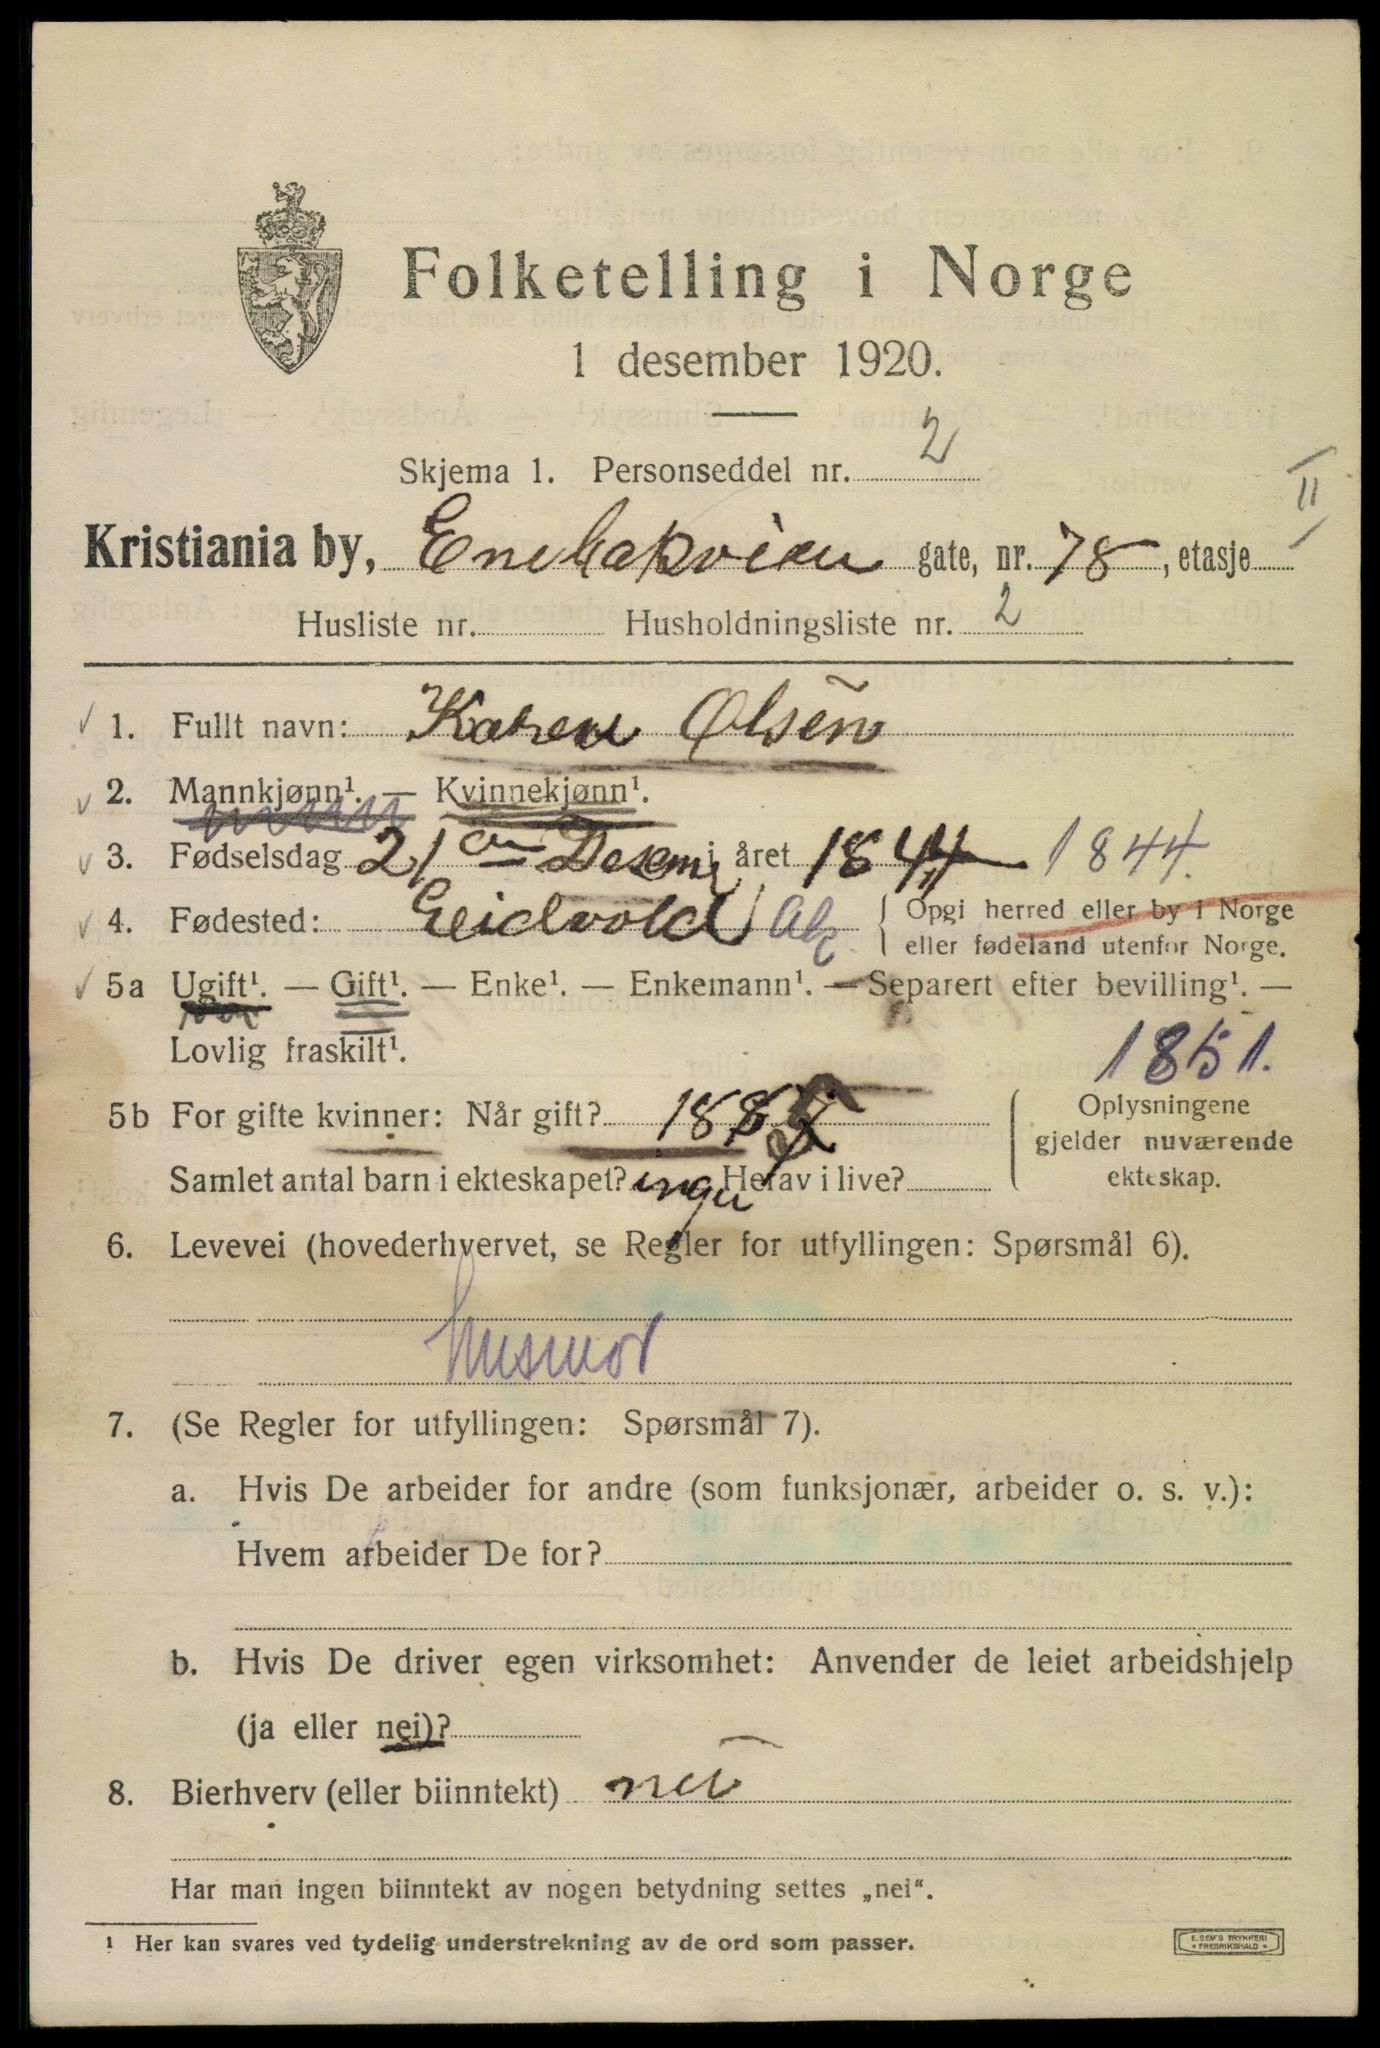 Folketelling i Norge
1 desember 1920.
Skjema 1. Personseddel nr. 2
Kristiania by, Enebakvien gate, nr. 78, etasje II
Husliste nr. Husholdningsliste nr. 2
1. Fullt navn: Karen Olsen
2. Mannkjønn¹. — Kvinnekjønn¹.
3. Fødselsdag 21 Desem i året 1844 1844.
4. Fødested: Eidvold Ak. { Opgi herred eller by i Norge
eller fødeland utenfor Norge.
5a Ugift¹. — Gift¹. — Enke¹. — Enkemann¹. — Separert efter bevilling¹. —
Lovlig fraskilt¹.
1851.
5b For gifte kvinner: Når gift? 188
Samlet antal barn i ekteskapet? ingen Herav i live?
Oplysningene
gjelder nuværende
ekteskap.
6. Levevei (hovederhvervet, se Regler for utfyllingen: Spørsmål 6).
husmor
7. (Se Regler for utfyllingen: Spørsmål 7).
a. Hvis De arbeider for andre (som funksjonær, arbeider o. s. v.):
Hvem arbeider De for?
b. Hvis De driver egen virksomhet: Anvender de leiet arbeidshjelp
(ja eller nei)?
8. Bierhverv (eller biinntekt) nei
Har man ingen biinntekt av nogen betydning settes „nei“.
¹ Her kan svares ved tydelig understrekning av de ord som passer.
E. SEM'S TRYKKERI
• FREDRIKSHALD •